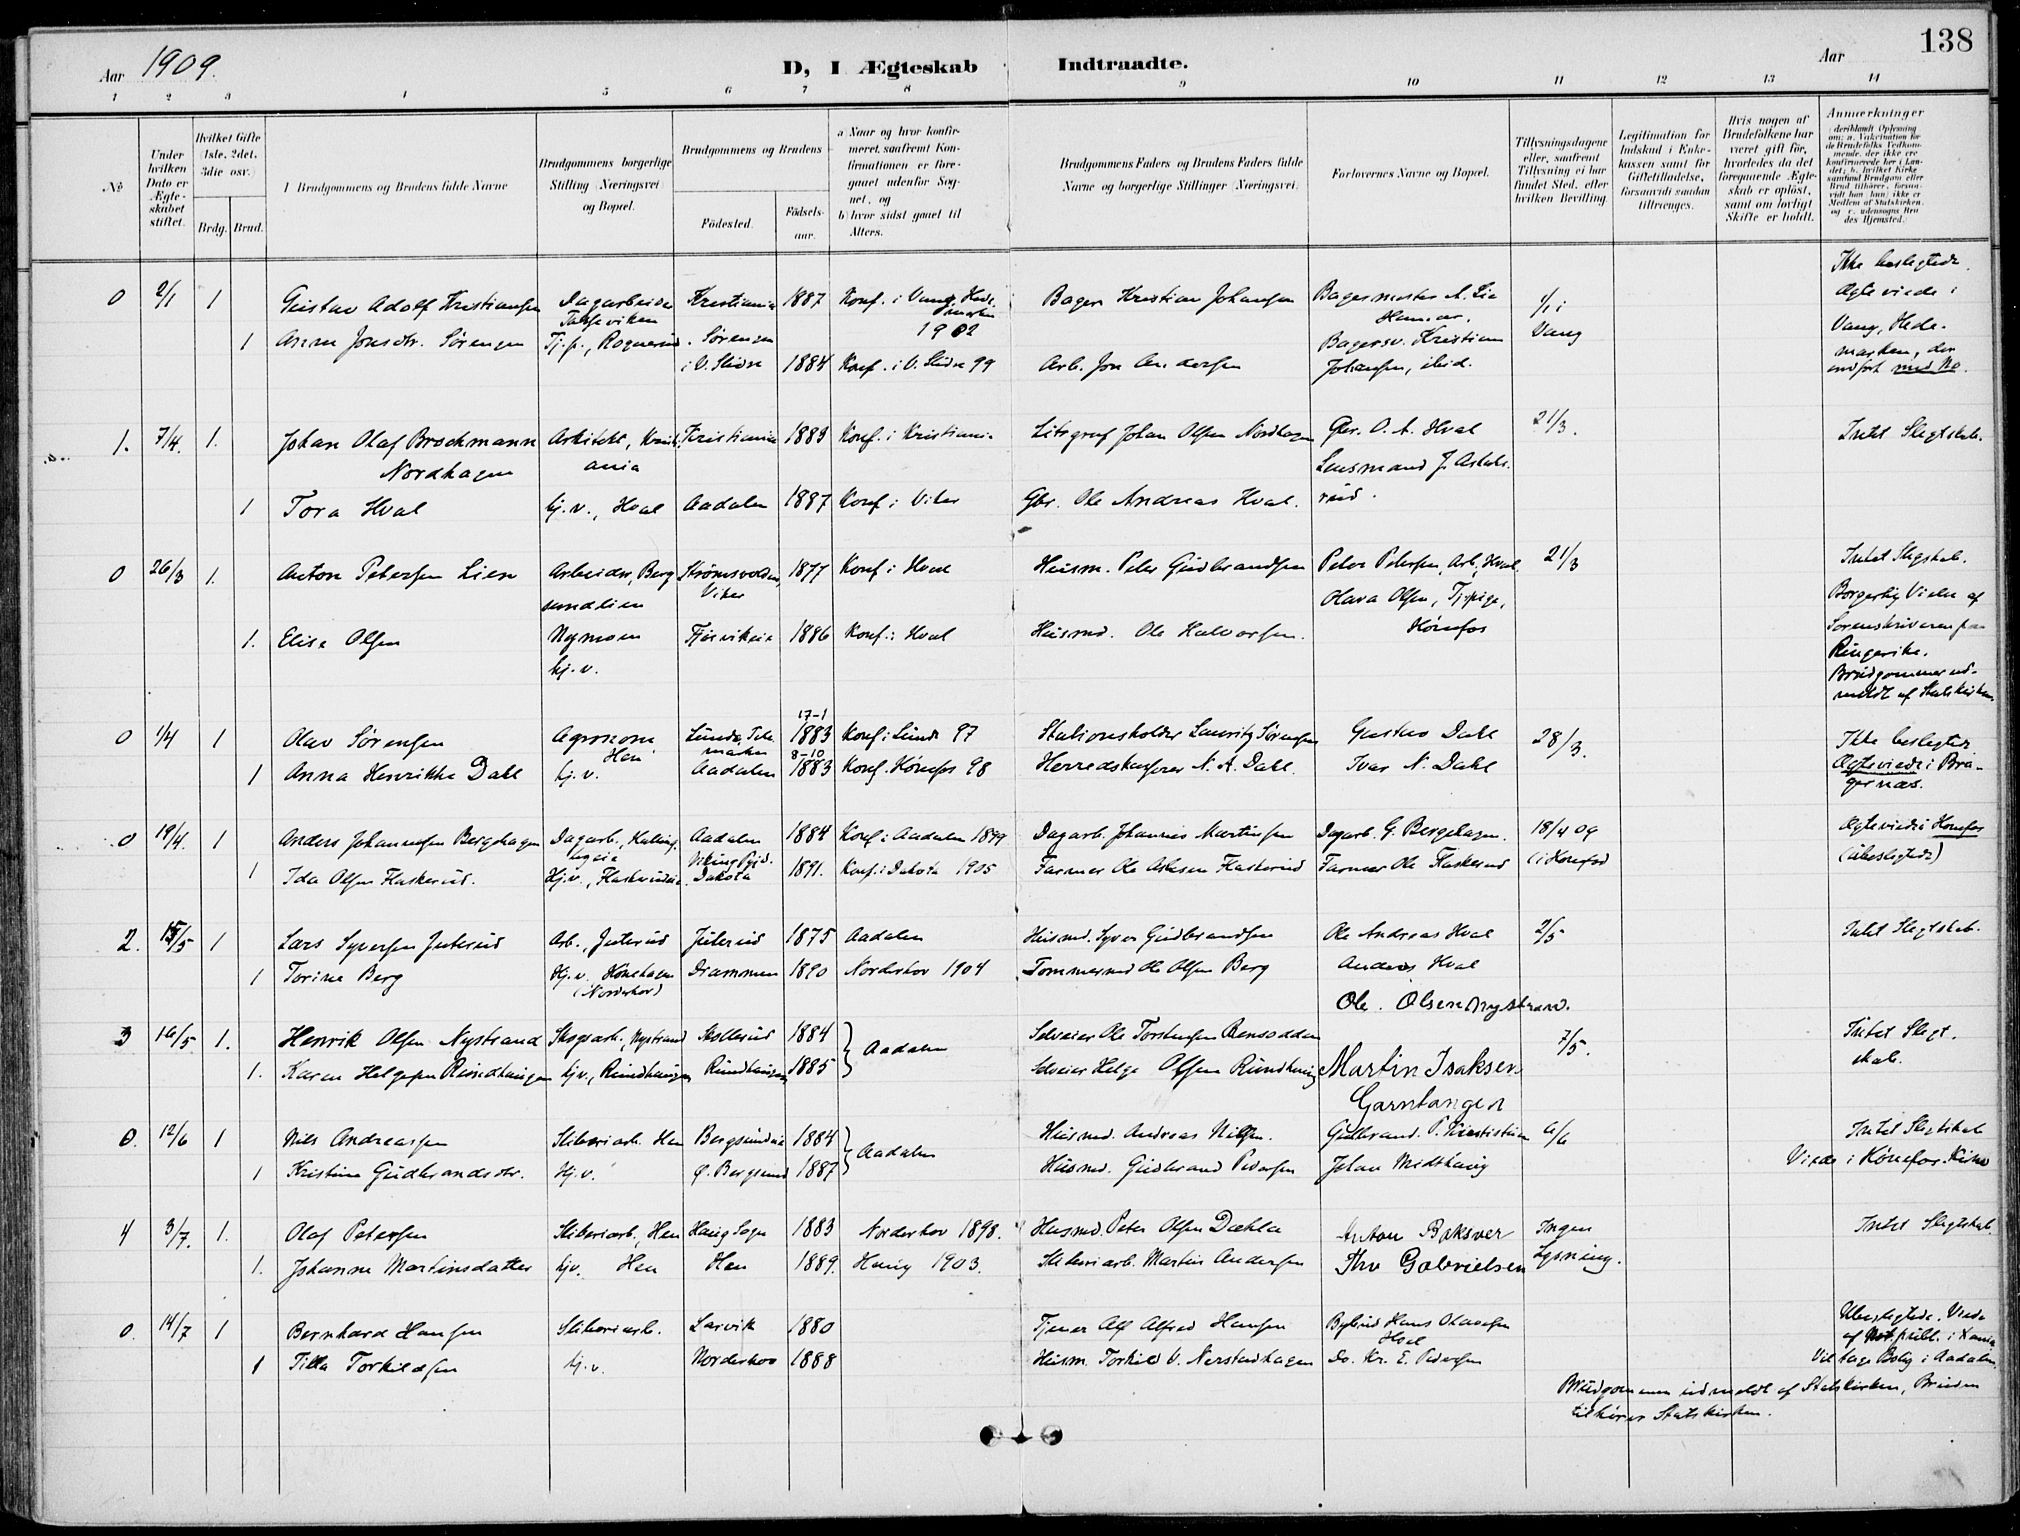 138
Aar 1909.
D, I Ægteskab Indtraadte.
Aar
1 2 3 4 5 6 7 8 9 10 11 12 13 14
No
Under hvilken Dato er Ægteskabet stiftet.
Hvilket Gifte (1ste, 2det, 3die osv.)
Brdg. Brud.
1 Brudgommens og Brudens fulde Navne
Brudgommens borgerlige Stilling (Næringsvei) og Bopæl.
Brudgommens og Brudens
Fødested.
Fødselsaar.
a) Naar og hvor konfirmeret, saafremt Konfirmationen er foregaaet udenfor Sognet, og
b) hvor sidst gaaet til Alters.
Brudgommens Faders og Brudens Faders fulde Navne og borgerlige Stillinger (Næringsvei).
Forlovernes Navne og Bopæl.
Tillysningsdagene eller, saafremt Tillysning ei har fundet Sted, efter hvilken Bevilling.
Legitimation for Indskud i Enkekassen samt for Giftetilladelse, forsaavidt saadan tiltrænges.
Hvis nogen af Brudefolkene har været gift før, hvorledes da det foregaaende Ægteskab er opløst, samt om lovligt Skifte er holdt.
Anmærkninger (deriblandt Oplysning om: a. Vakcination for de Brudefolks Vedkommende, der ikke ere konfirmerede her i Landet; b. hvilket Kirkesamfund Brudgom eller Brud tilhører, forsaavidt han (hun) ikke er Medlem af Statskirken, og c. udensogns Brudes Hjemsted.)
0 2/1 1 Gustav Adolf Kristiansen Dagarbeider Kristiania 1887 Konf. i Vang, Hedemarken 1902 Bager Kristian Johansen Bagermester A. Lie Hamar. 1/1 i Vang Ikke beslegtede. Ægteviede i Vang, Hedemarken, der indført med No.
1 Anne Jonsdtr. Sørengen Tj.p., Rognerud Sørengen i V. Slidre 1884 Konf. i V. Slidre 99 Arb. Jon Andersen Bagersv. Kristian Johansen, ibid.
1. 7/4. 1. Johan Olaf Brochmann Nordhagen Arkitekt, Kristiania Kristiania 1883 Konf. i Kristiania Litograf Johan Olsen Nordhagen Gbr. O. A. Hval 21/3. Intet Slegtskab.
Lensmand J.
1 Tora Hval hj.v., Hval Aadalen 1887 Konf. i Viker Gbr. Ole Andreas Hval.
0 26/3 1. Anton Petersen Lien Arbeider, Bergsundlien Strømsodden, Viker 1877 Konf. i Hval Husm. Peter Gudbrandsen Peter Petersen, Arb., Hval. 21/3 Intet Slegtskab.
Olava Olsen, Tj.pige, Hønefos Borgerlig Vielse af Sorenskriveren paa Ringerike. Brudgommen udmeldt af Statskirken.
1. Elise Olsen Nymoen hj.v. 1886 Konf. i Hval Husmd. Ole Halvorsen.
0 1/4 1 Olav Sørensen Agronom Hen Lunde, Telemarken 17-1 1883 Konf. i Lunde 97 Stationsholder Lauritz Sørensen Gustav Dahl 28/3. Ikke beslegtede. Ægteviede i Bragernæs.
1 Anna Henrikke Dahl hj.v. Aadalen 8-10 1883 Konf. Hønefos 98 Herredskasserer N. A. Dahl. Ivar N. Dahl
0 19/4. 1 Anders Johannesen Bergehagen Dagarb., Aadalen 1884 Konf. i Aadalen 1899 Dagarb. Johannes Martinsen Dagarb. G. Bergehagen. 18/4 09 (i Hønefos) Ægteviede i Hønefos (ubeslegtede)
1 Ida Olsen Flaskerud. Hj.v., Flaskerudeie Dakota 1891. Konf. i Dakota 1905 Farmer Ole Asleson Flaskerud Farmer Ole Flaskerud
2. 15/5 1 Lars Syversen Juterud Arb., Juterud Juterud 1875 Aadalen Husmd. Syver Gudbrandsen Ole Andreas Hval 2/5 Intet Slegtskab.
1 Torine Berg Hj.v. Hønehagen (Norderhov) Drammen 1890 Norderhov 1904 Tømmermd Ole Olsen Berg Anders Hval
Ole Olsen Nystrand.
3 16/5 1. Henrik Olsen Nystrand Skogsarb., Nystrand Skollerud 1884 Aadalen Selveier Ole Torstensen Bensodden 7/5. Intet Slegtskab.
1. Karen Helgesen Rundhaugen hj.v., Rundhaugen Rundhaugen 1885 Selveier Helge Olsen Rundhaug Martin Isaksen Garntangen
0. 12/6 1 Nils Andreassen Sliberiarb. Hen Bergsundeie 1884 Aadalen Husmd. Andreas Nilsen. Gulbrand P. 6/6 Intet Slegtskab
1 Kristine Gudbrandsdtr. Hj.v. Ø. Bergsund 1887 Husmd. Gudbrand Pedersen Johan Midthaug Viede i Hønefos Kirke
4 3/7. 1. Olaf Petersen Sliberiarb., Hen Haug Sogn 1883 Norderhov 1898. Husmd. Peter Olsen Dæhle Anton Baksver Ingen Lysning. Intet Slegtskab.
1. Johanne Martinsdatter hj.v. Hen Hen 1889. Haug 1903. Sliberiarb. Martin Andersen Thv Gabrielsen
0. 14/7 1 Bernhard Hansen Sliberiarb. Larvik 1880 Tjener Alf Alfred Hansen Bybud Hans Olavesen Hval Ubeslegtede. Viede af Not. publ. i Kania
1 Tilla Torkildsen hj.v. Norderhov 1888 Husm. Torkild V. Nerstadhagen Do. Kr. E. Pedersen Vil tage Bolig i Aadalen.
Brudgommen udmeldt af Statskirken, Bruden tilhører Statskirken.